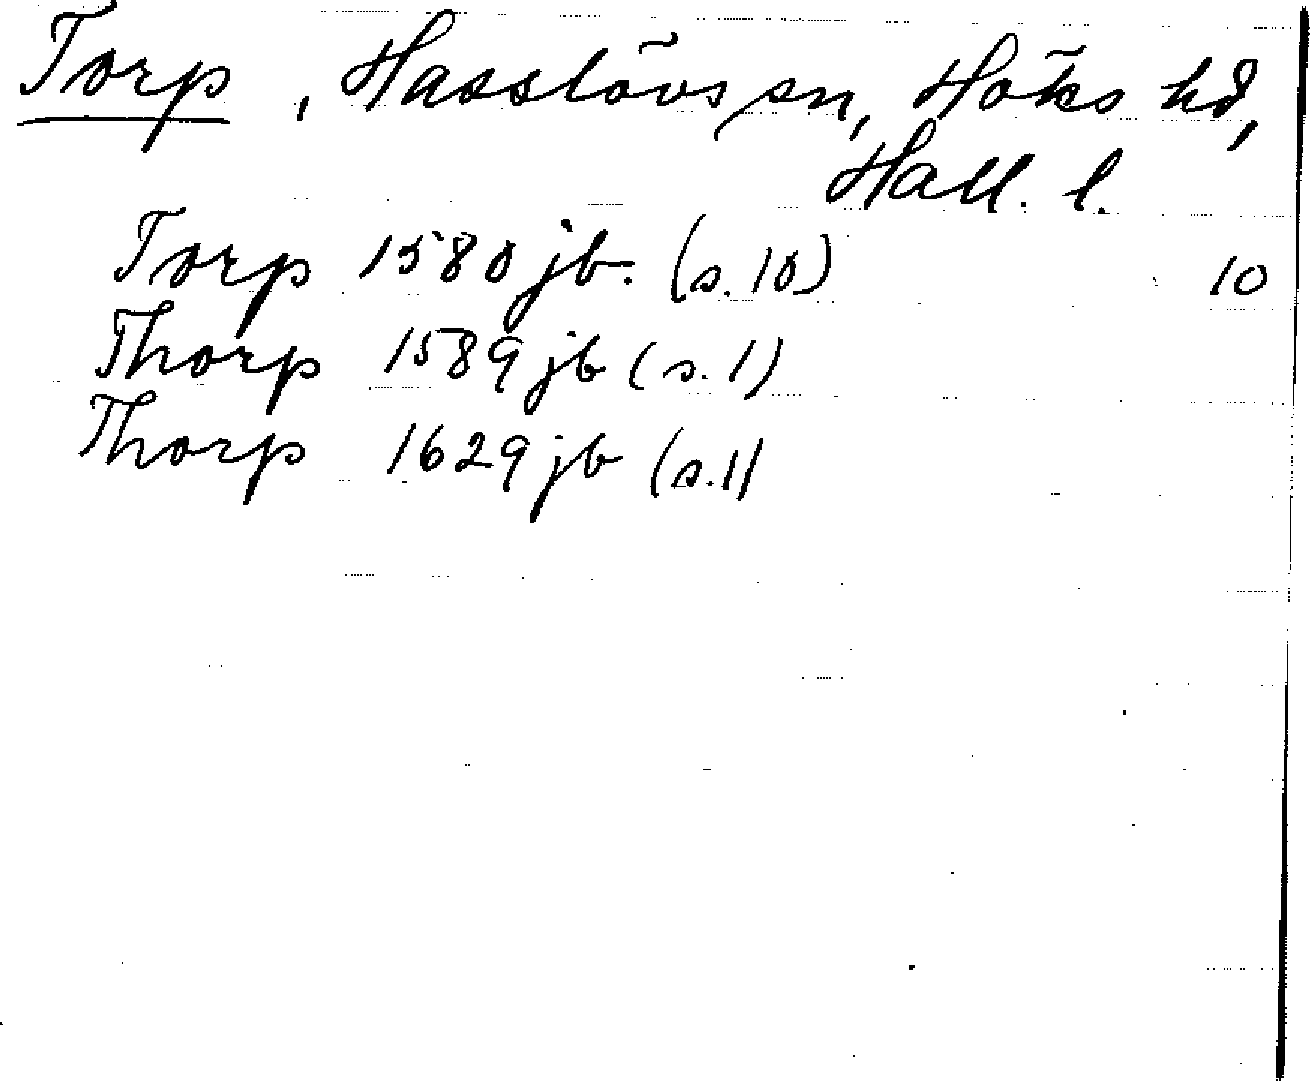 Torp, Hasslövs sn, Höks hd,
Hall. l.
Torp 1580 jb. (s. 10) 10
Thorp 1589 jb (s. 1)
Thorp 1629 jb (s. 1)